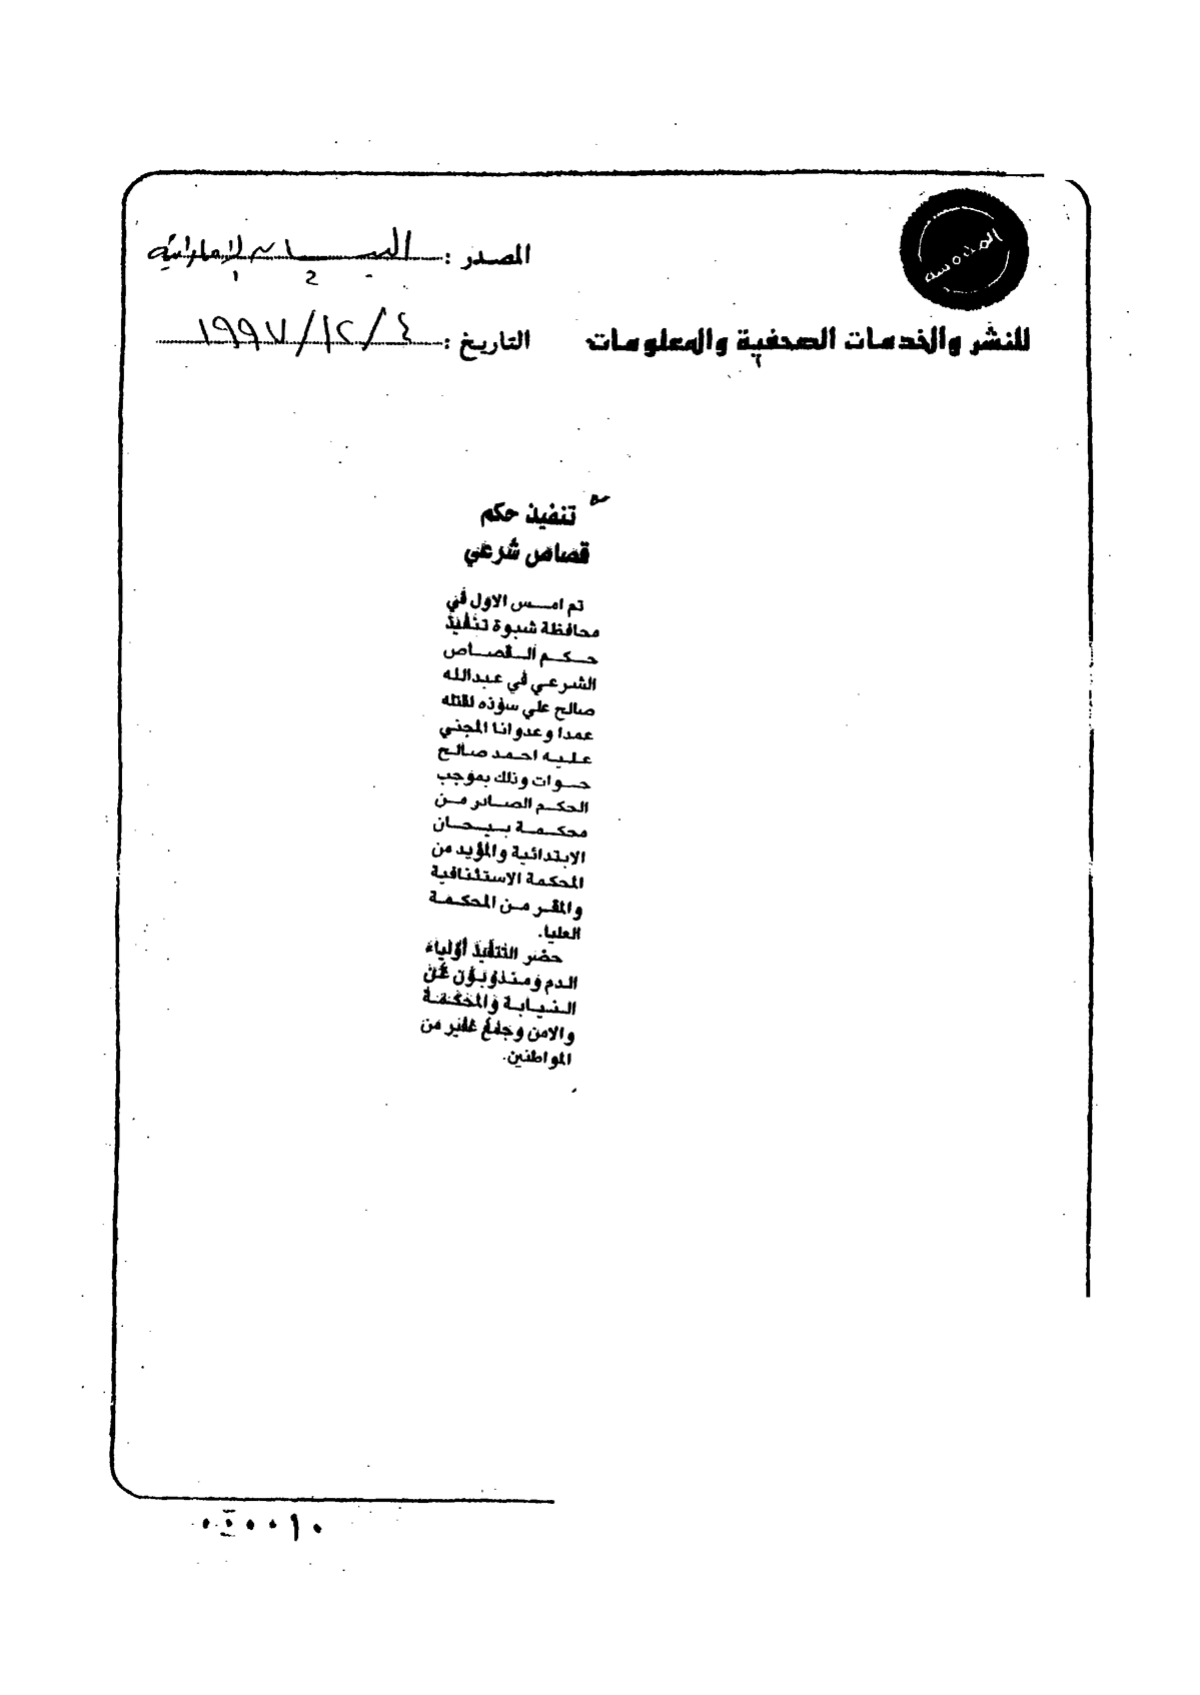 المصدر : البيان الإماراتية
للنشر والخدمات الصحفية والمعلومات
التاريخ : ٤/١٢/١٩٩٧
تنفيذ حكم
قصاص شرعي
تم امس الاول في
محافظة شبوة تنفيذ
حكم القصاص
الشرعي في عبدالله
صالح علي سؤده لقتله
عمدا وعدوانا المجني
عليه احمد صالح
حوات وذلك بموجب
الحكم الصادر من
محكمة بيحان
الابتدائية والمؤيد من
المحكمة الاستئنافية
والمقر من المحكمة
العليا.
حضر التنفيذ أولياء
الدم ومندوبون عن
النيابة والمحكمة
والامن وجمع غفير من
المواطنين.